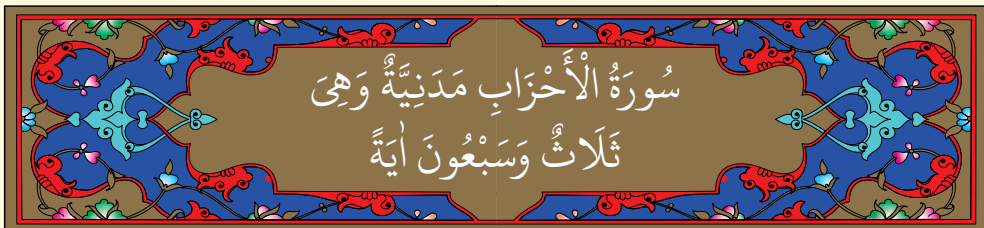 سُورَةُ الْأَحْزَابِ مَدَنِيَّةٌ وَهِىَ
ثَلَاثٌ وَسَبْعُونَ اٰيَةً